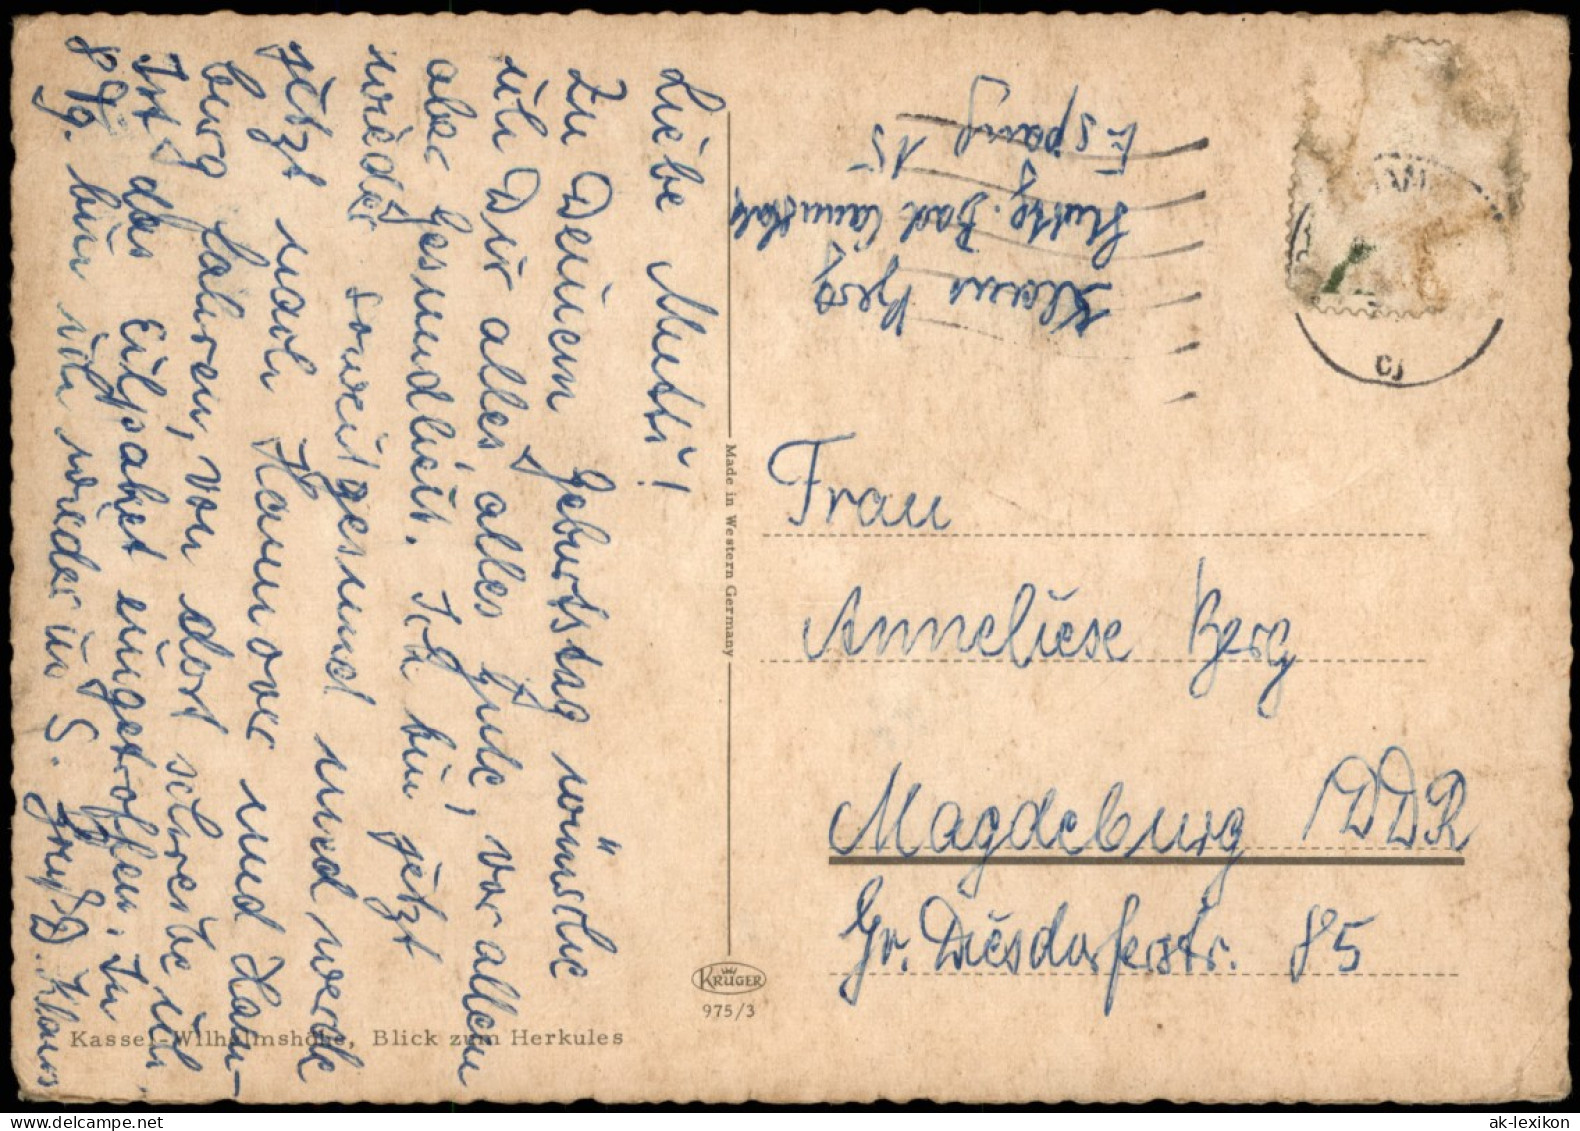 Liebe Mutti!
Zu Deinem Geburtstag wünsche
ich Dir alles alles Gute, vor allem
aber Gesundheit. Ich bin jetzt
wieder soweit gesund und werde
jetzt nach Hannover und Ham-
burg fahren, von dort schreibe ich.
Ist das Eilpaket eingetroffen. In
8 Tg. bin ich wieder in S. D. Klaus
Kassel-Wilhelmshöhe, Blick zum Herkules
Made in Western Germany
KRÜGER
975/3
Klaus Berg
Stuttg. Bad Cannstatt
15
Frau
Anneliese Berg
Magdeburg /DDR
Gr. Diesdorferstr. 85
ak-lexikon